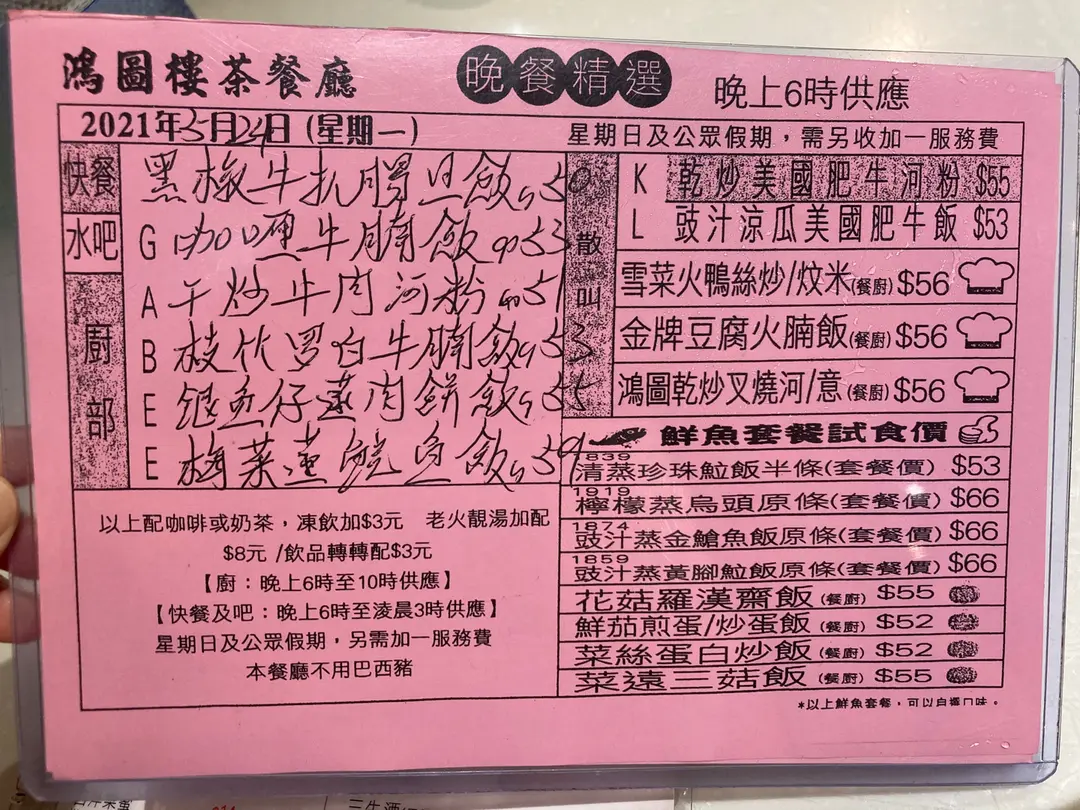 鴻圖樓茶餐廳
晚餐精選
晚上6時供應
2021年5月24日(星期一)
星期日及公眾假期，需另收加一服務費
快餐
水吧
廚部
黑椒牛扒腸旦飯 50
G 咖喱牛腩飯 53
A 干炒牛肉河粉 51
B 枝竹罗白牛腩飯 53
E 銀魚仔蒸肉餅飯 55
E 梅菜蒸鯇魚飯 59
以上配咖啡或奶茶，凍飲加$3元 老火靚湯加配
$8元 /飲品轉轉配$3元
【廚：晚上6時至10時供應】
【快餐及吧：晚上6時至淩晨3時供應】
星期日及公眾假期，另需加一服務費
本餐廳不用巴西豬
散叫
K 乾炒美國肥牛河粉 $55
L 豉汁涼瓜美國肥牛飯 $53
雪菜火鴨絲炒/炆米(餐廚) $56
金牌豆腐火腩飯(餐廚) $56
鴻圖乾炒叉燒河/意(餐廚) $56
鮮魚套餐試食價
1839
清蒸珍珠䱽飯半條(套餐價) $53
1919
檸檬蒸烏頭原條(套餐價) $66
1874
豉汁蒸金鯧魚飯原條(套餐價) $66
1859
豉汁蒸黃腳䱽飯原條(套餐價) $66
花菇羅漢齋飯(餐廚) $55
鮮茄煎蛋/炒蛋飯(餐廚) $52
菜絲蛋白炒飯(餐廚) $52
菜遠三菇飯(餐廚) $55
*以上鮮魚套餐，可以自選口味。